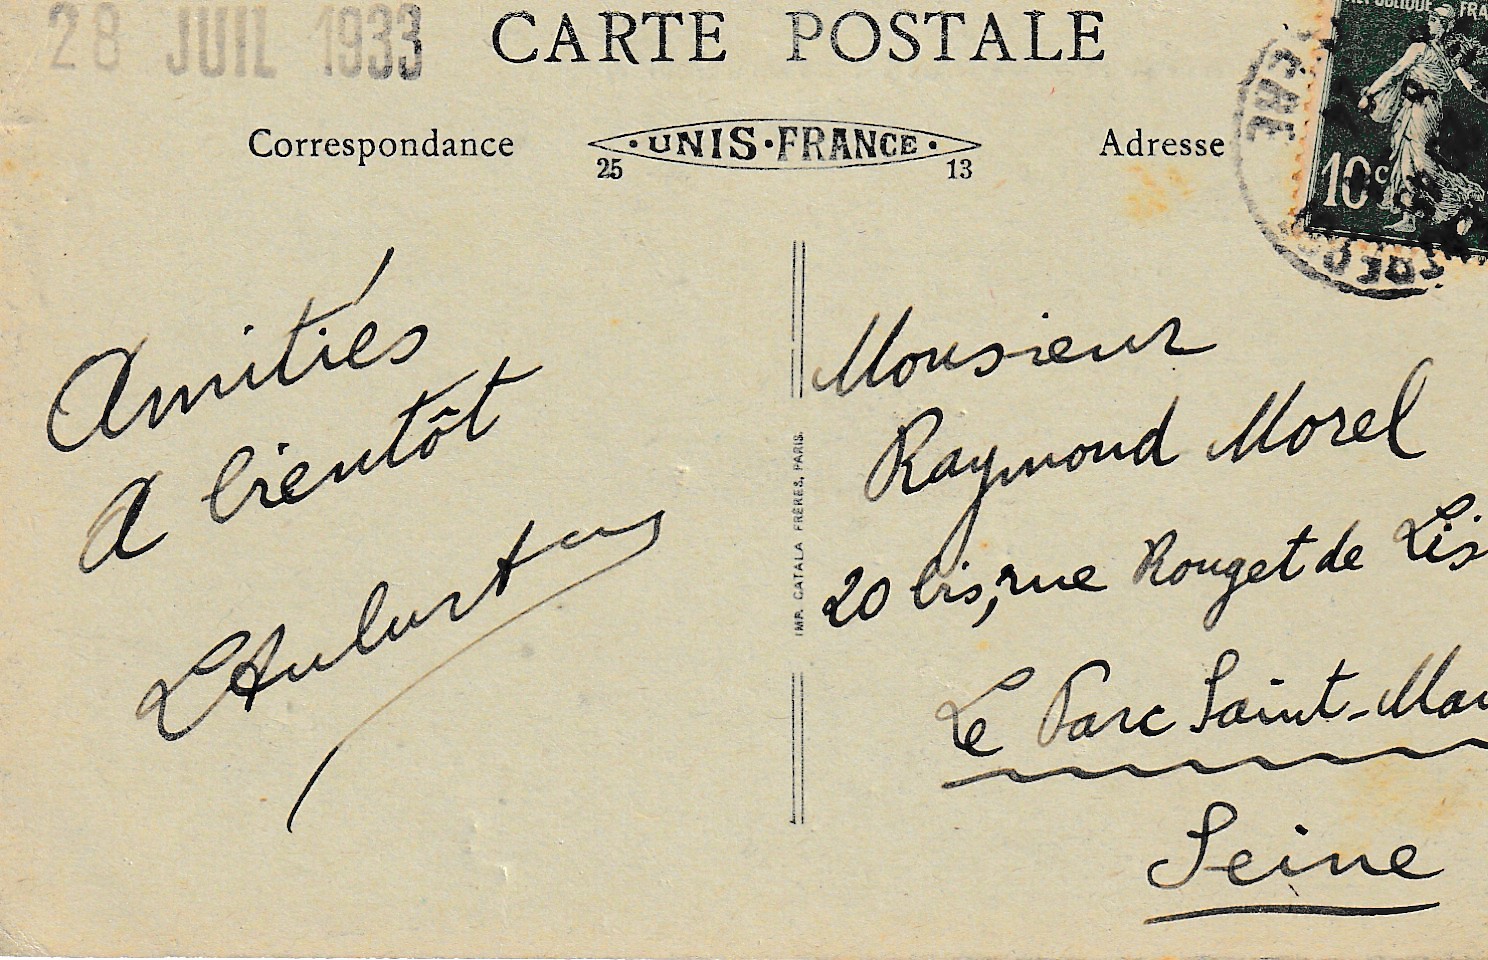 28 JUIL 1933
CARTE POSTALE
RÉPUBLIQUE FRA
10c
Correspondance
·UNIS·FRANCE·
25 13
Adresse
Amitiés
A bientôt
IMP. CATALA FRÈRES, PARIS.
Monsieur
Raymond Morel
20 bis, rue Rouget de Lis
Le Parc Saint-Mau
Seine